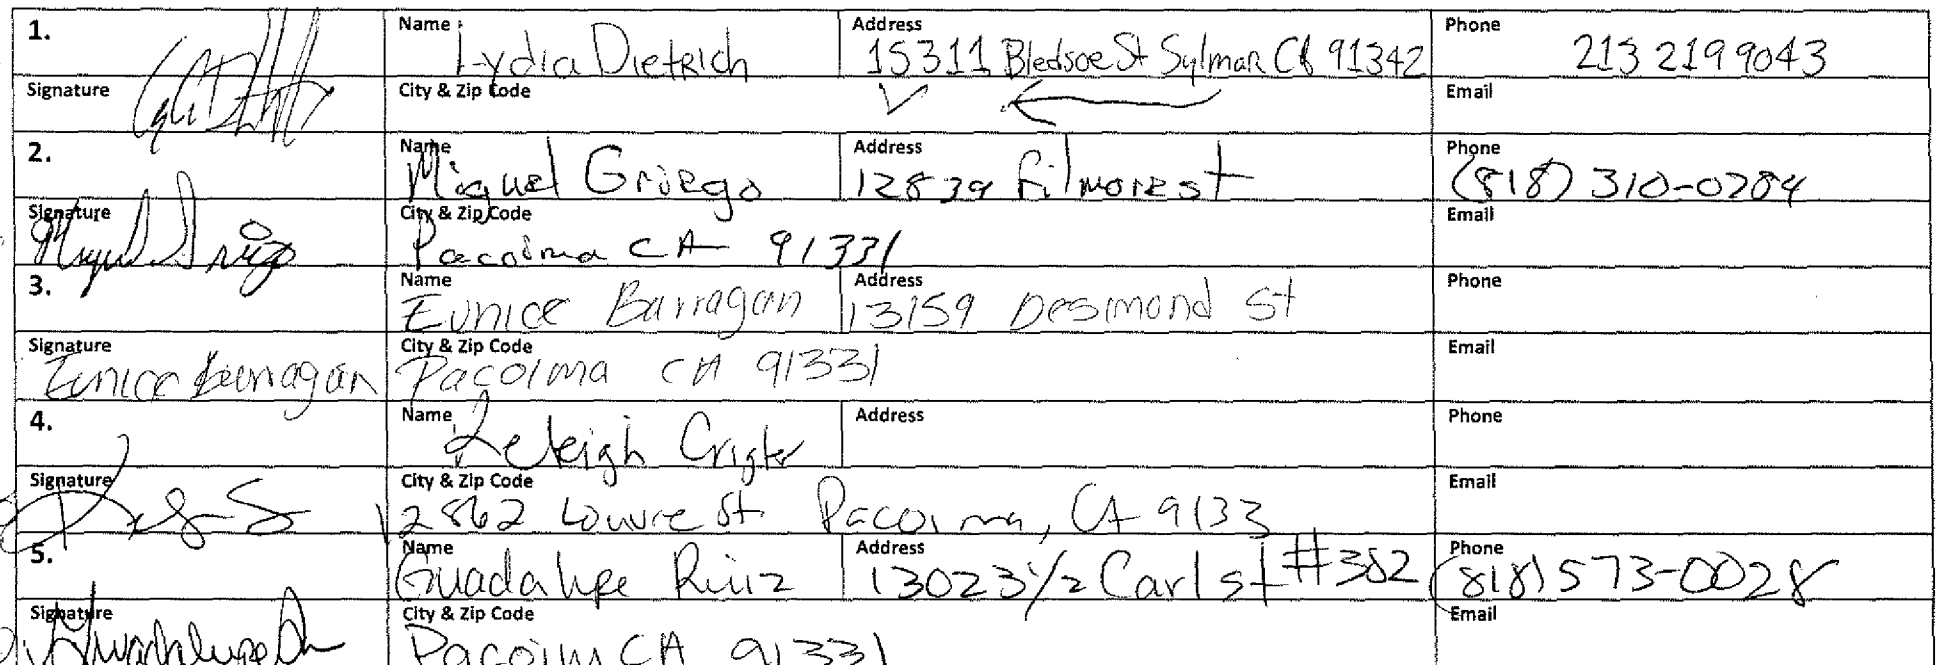 1. Name Lydia Dietrich Address 15311 Bledsoe St Sylmar CA 91342 Phone 213 219 9043
Signature City & Zip Code Email
2. Name Miguel Griego Address 12839 Filmore st Phone (818) 310-0284
Signature Miguel Griego City & Zip Code Pacoima CA 91331 Email
3. Name Eunice Barragan Address 13159 Desmond St Phone
Signature Eunice Barragan City & Zip Code Pacoima CA 91331 Email
4. Name Keleigh Crigler Address Phone
Signature City & Zip Code 12862 Louvre St. Pacoima, CA 9133 Email
5. Name Guadalupe Ruiz Address 13023 1/2 Carl st #382 Phone (818) 573-0028
Signature City & Zip Code Pacoima CA 91331 Email